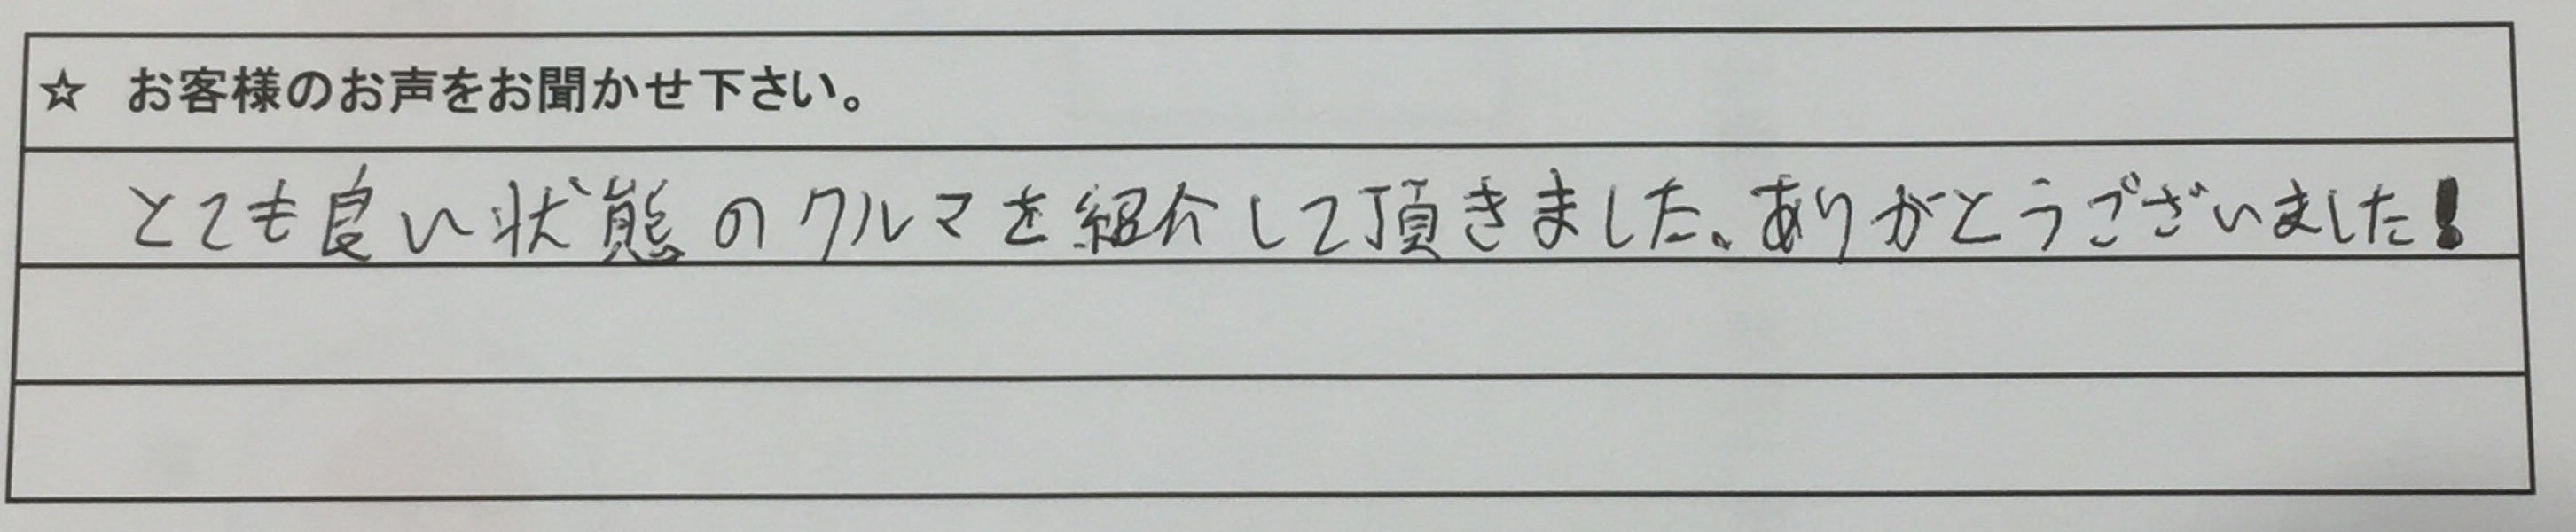 ☆ お客様のお声をお聞かせ下さい。
とても良い状態のクルマを紹介して頂きました。ありがとうございました!